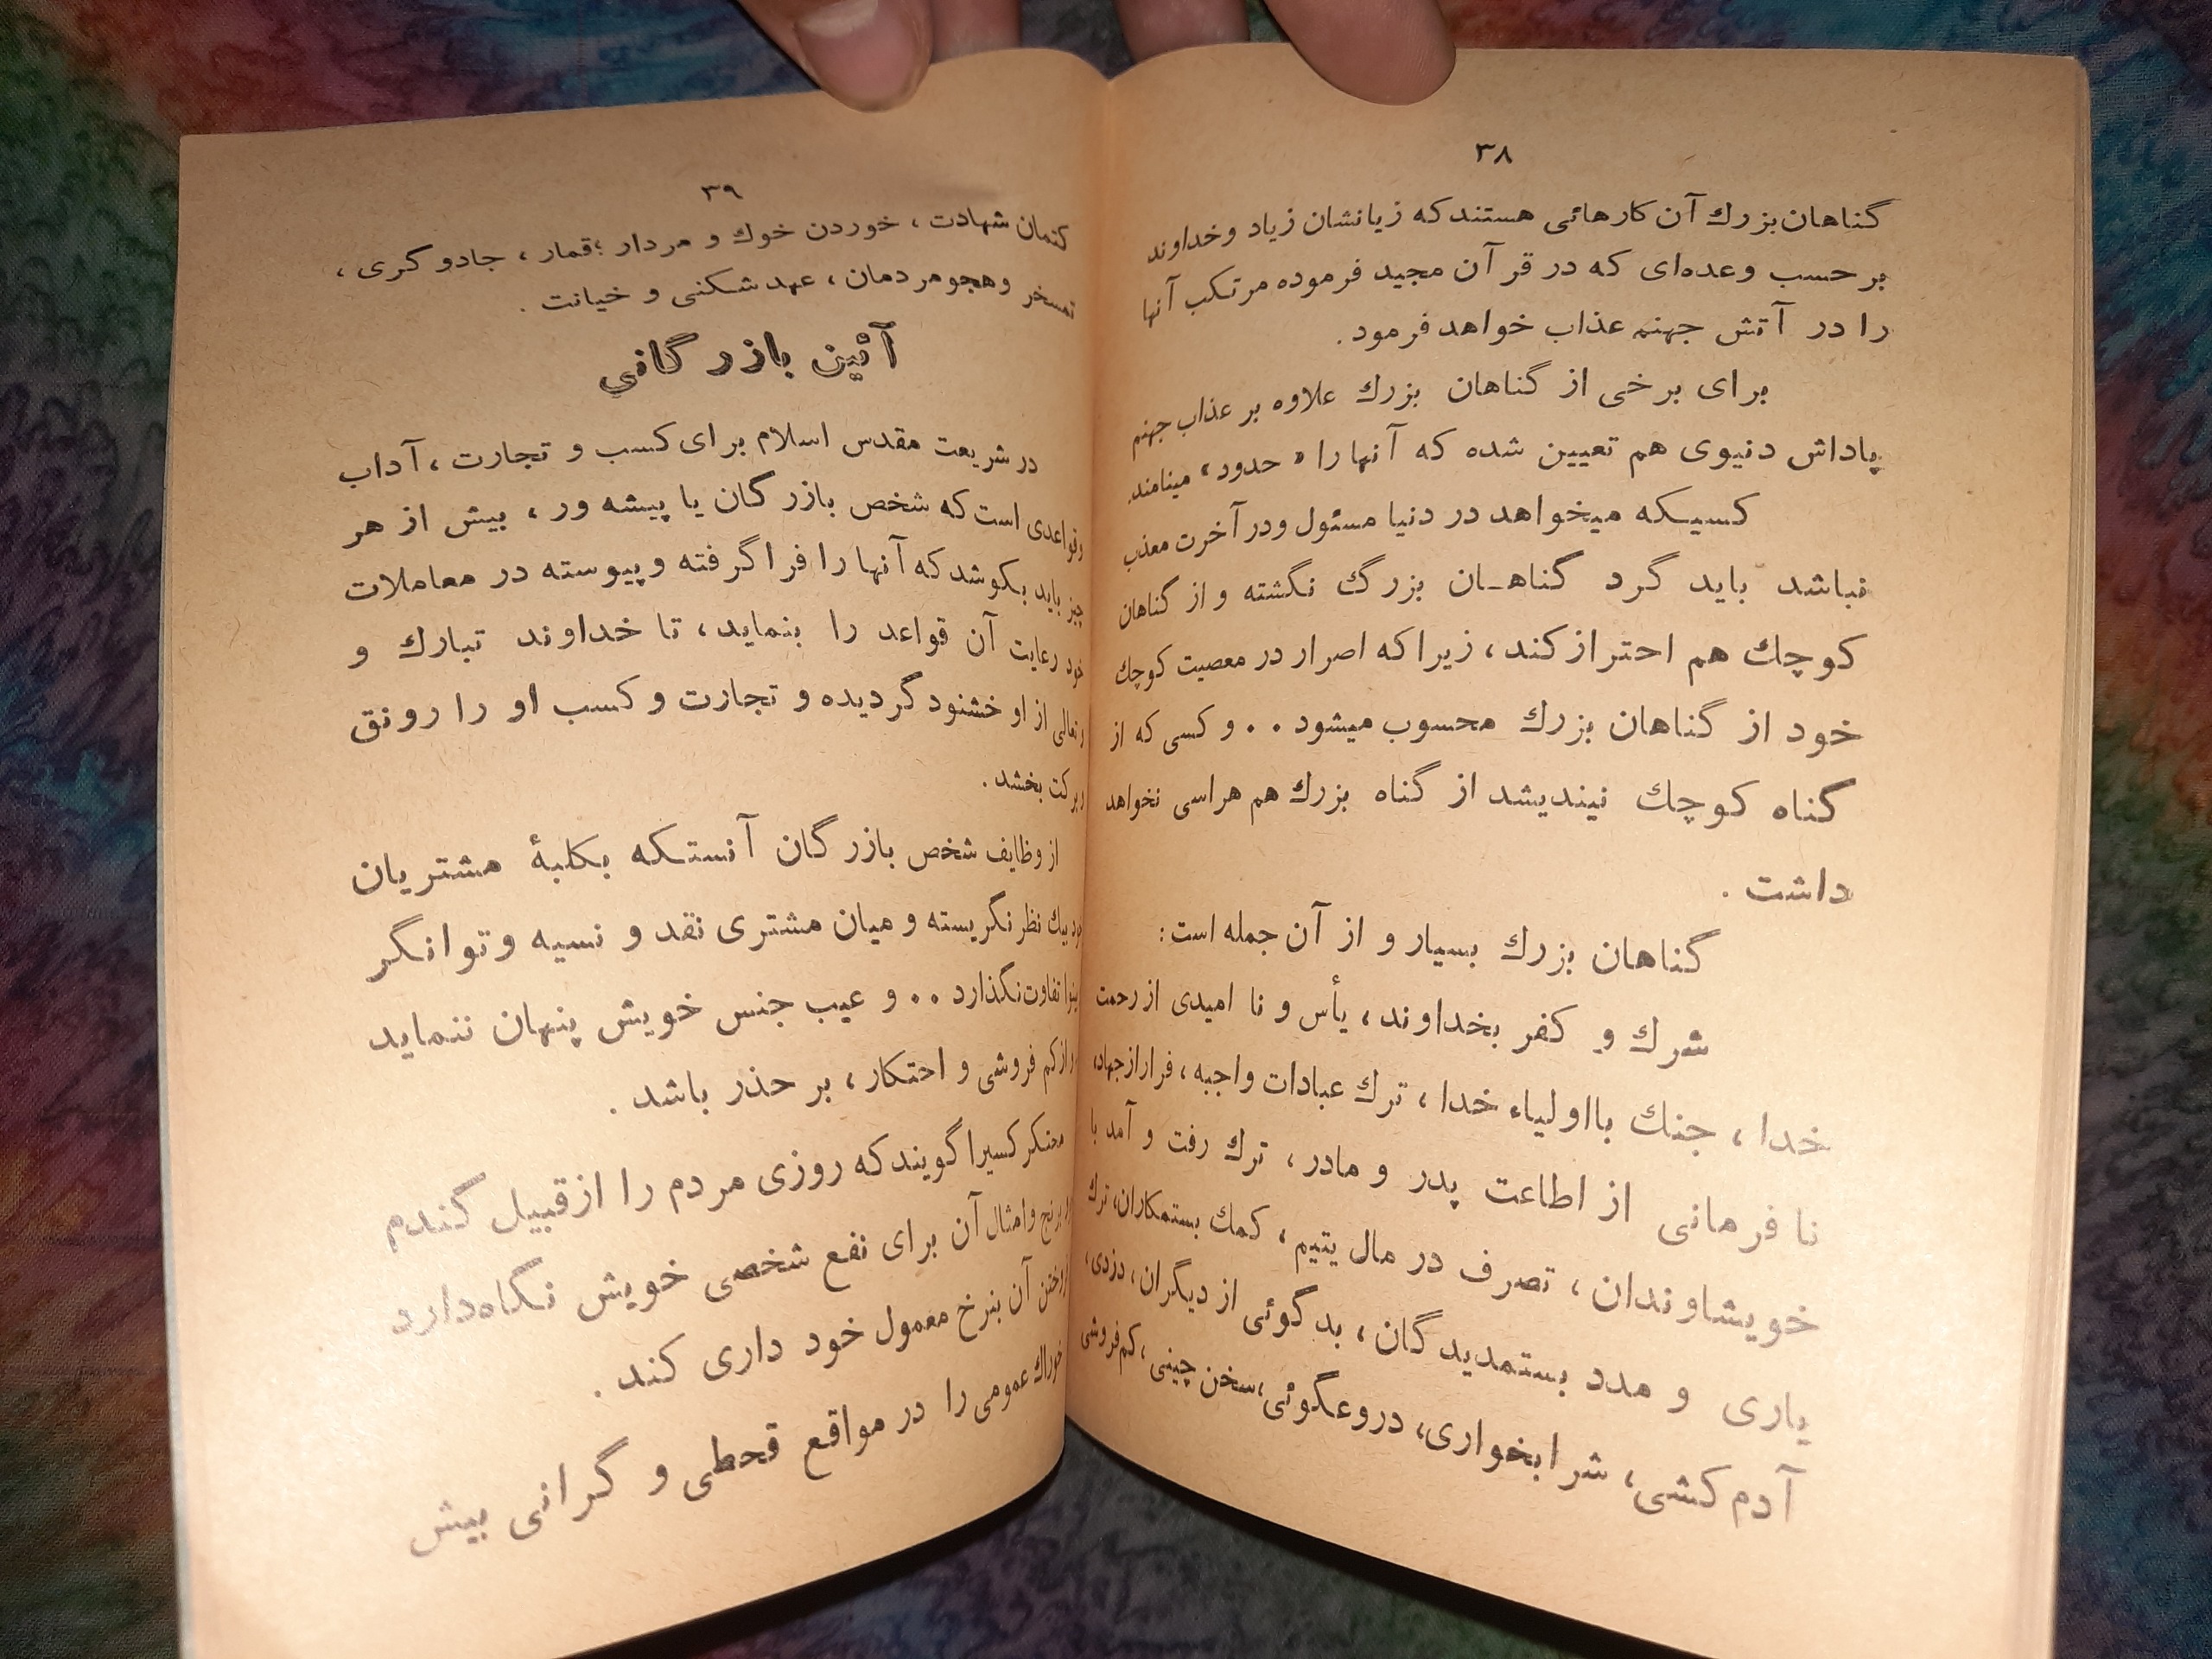 ۳۸
گناهان بزرك آن كارهائی هستند كه زیانشان زیاد و خداوند
بر حسب وعده‌ای که در قرآن مجید فرموده مرتکب آنها
را در آتش جهنم عذاب خواهد فرمود.
برای برخی از گناهان بزرك علاوه بر عذاب جهنم
پاداش دنیوی هم تعیین شده که آنها را «حدود» مینامند.
کسیکه میخواهد در دنیا مسئول ودر آخرت معذب
نباشد باید گرد گناهـان بزرگ نگشته و از گناهان
كوچك هم احتراز کند، زیرا که اصرار در معصیت كوچك
خود از گناهان بزرك محسوب میشود.. و کسی که از
گناه كوچك نیندیشد از گناه بزرك هم هراسی نخواهد
داشت.
گناهان بزرك بسیار و از آن جمله است:
شرك و کفر بخداوند، یأس و نا امیدی از رحمت
خدا، جنك بااولیاء خدا، ترك عبادات واجبه، فرار از جهاد،
نا فرمانی از اطاعت پدر و مادر، ترك رفت و آمد با
خویشاوندان، تصرف در مال یتیم، كمك بستمکاران، ترك
یاری و مدد بستمدیدگان، بدگوئی از دیگران، دزدی،
آدم کشی، شرابخواری، دروغگوئی، سخن چینی، کم فروشی
۳۹
کتمان شهادت، خوردن خوك و مردار؛ قمار، جادوگری،
تمسخر وهجو مردمان، عهد شکنی و خیانت.
آئین بازرگانی
در شریعت مقدس اسلام برای کسب و تجارت، آداب
وقواعدی است که شخص بازرگان یا پیشه ور، بیش از هر
چیز باید بکوشد که آنها را فراگرفته و پیوسته در معاملات
خود رعایت آن قواعد را بنماید، تا خداوند تبارك و
و تعالی از او خشنود گردیده و تجارت و کسب او را رونق
و برکت بخشد.
از وظایف شخص بازرگان آنستکه بکلیهٔ مشتریان
خود بیك نظر نگریسته و میان مشتری نقد و نسیه و توانگر
تفاوت نگذارد.. و عیب جنس خویش پنهان ننماید
و از کم فروشی و احتکار، بر حذر باشد.
محتکر کسیرا گویند که روزی مردم را از قبیل گندم
برنج وامثال آن برای نفع شخصی خویش نگاه‌دارد
فروختن آن بنرخ معمول خود داری کند.
خوراك عمومی را در مواقع قحطی و گرانی بیش